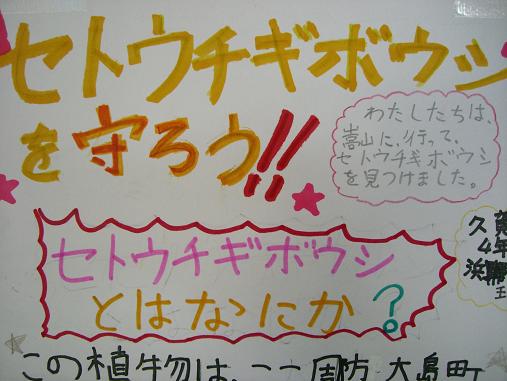 セトウチギボウシ
を守ろう!!
わたしたちは、
嵩山に、行って、
セトウチギボウシ
を見つけました。
セトウチギボウシ
とはなにか?
久賀
4年
浜
この植物は、ここ周防大島町